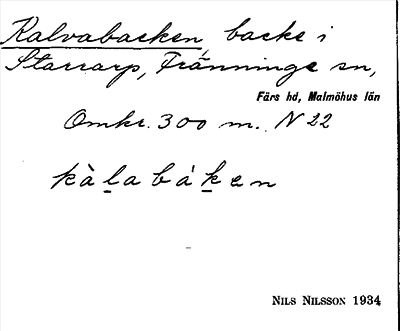 Kalvabacken, backe i
Starrarp, Tränninge sn,
Färs hd, Malmöhus län
Omkr. 300 m. N 22
kàlabáken
NILS NILSSON 1934